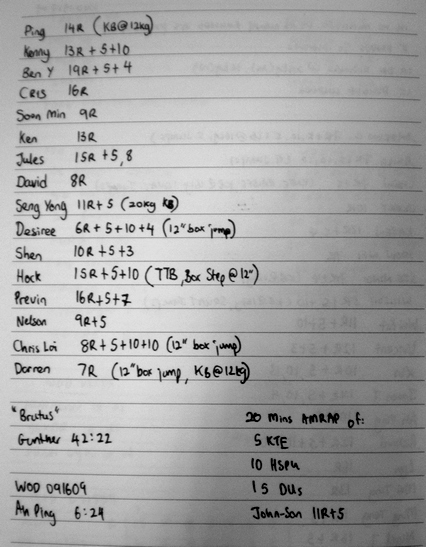 Ping 14R (KB@12kg)
Kenny 13R + 5 + 10
Ben Y 19R + 5 + 4
CRIS 16R
Soon Min 9R
Ken 13R
Jules 15R + 5, 8
David 8R
Seng Yong 11R + 5 (20kg KB)
Desiree 6R + 5 + 10 + 4 (12" box jump)
Shen 10R + 5 + 3
Hock 15R + 5 + 10 (TTB, Box Step @ 12")
Previn 16R + 5 + 7
Nelson 9R + 5
Chris Loi 8R + 5 + 10 + 10 (12" box jump)
Darren 7R (12" box jump, KB@12kg)
"Brutus"
Gunther 42:22
WOD 091609
Ah Ping 6:24
20 Mins AMRAP of:
5 KTE
10 HSPU
15 DUs
John-Son 11R+5